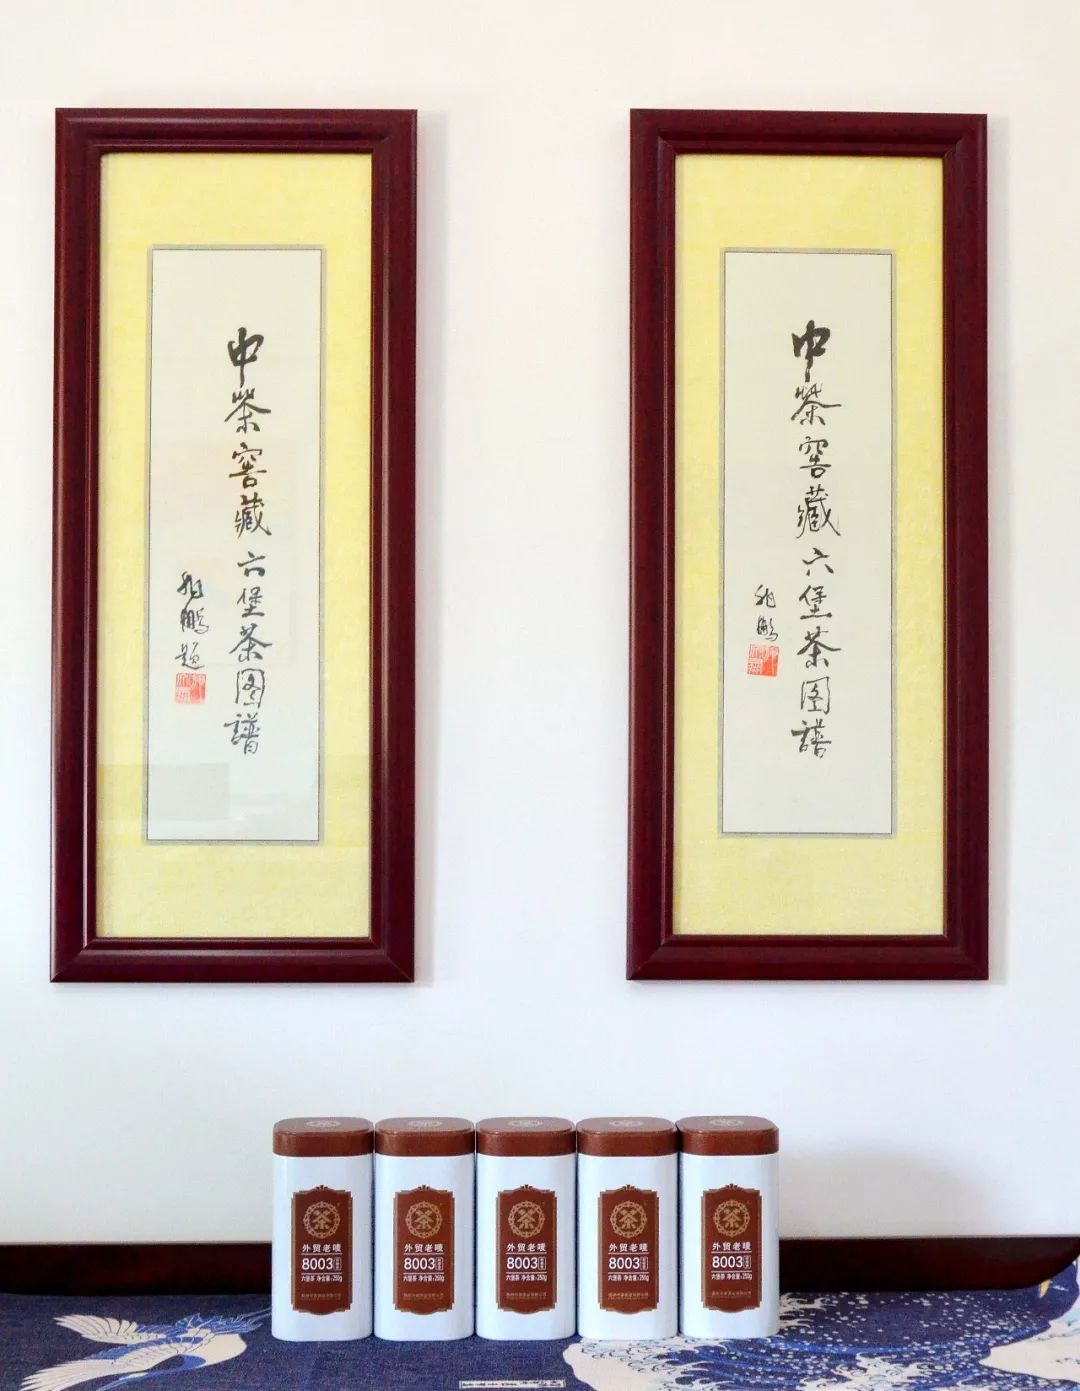 中茶窖藏六堡茶图譜
兆鹏题
中茶窖藏六堡茶图譜
兆鹏
茶
外贸老唛
8003
六堡茶 净含量:250g
茶
外贸老唛
8003
六堡茶 净含量:250g
茶
外贸老唛
8003
六堡茶 净含量:250g
茶
外贸老唛
8003
六堡茶 净含量:250g
茶
外贸老唛
8003
六堡茶 净含量:250g